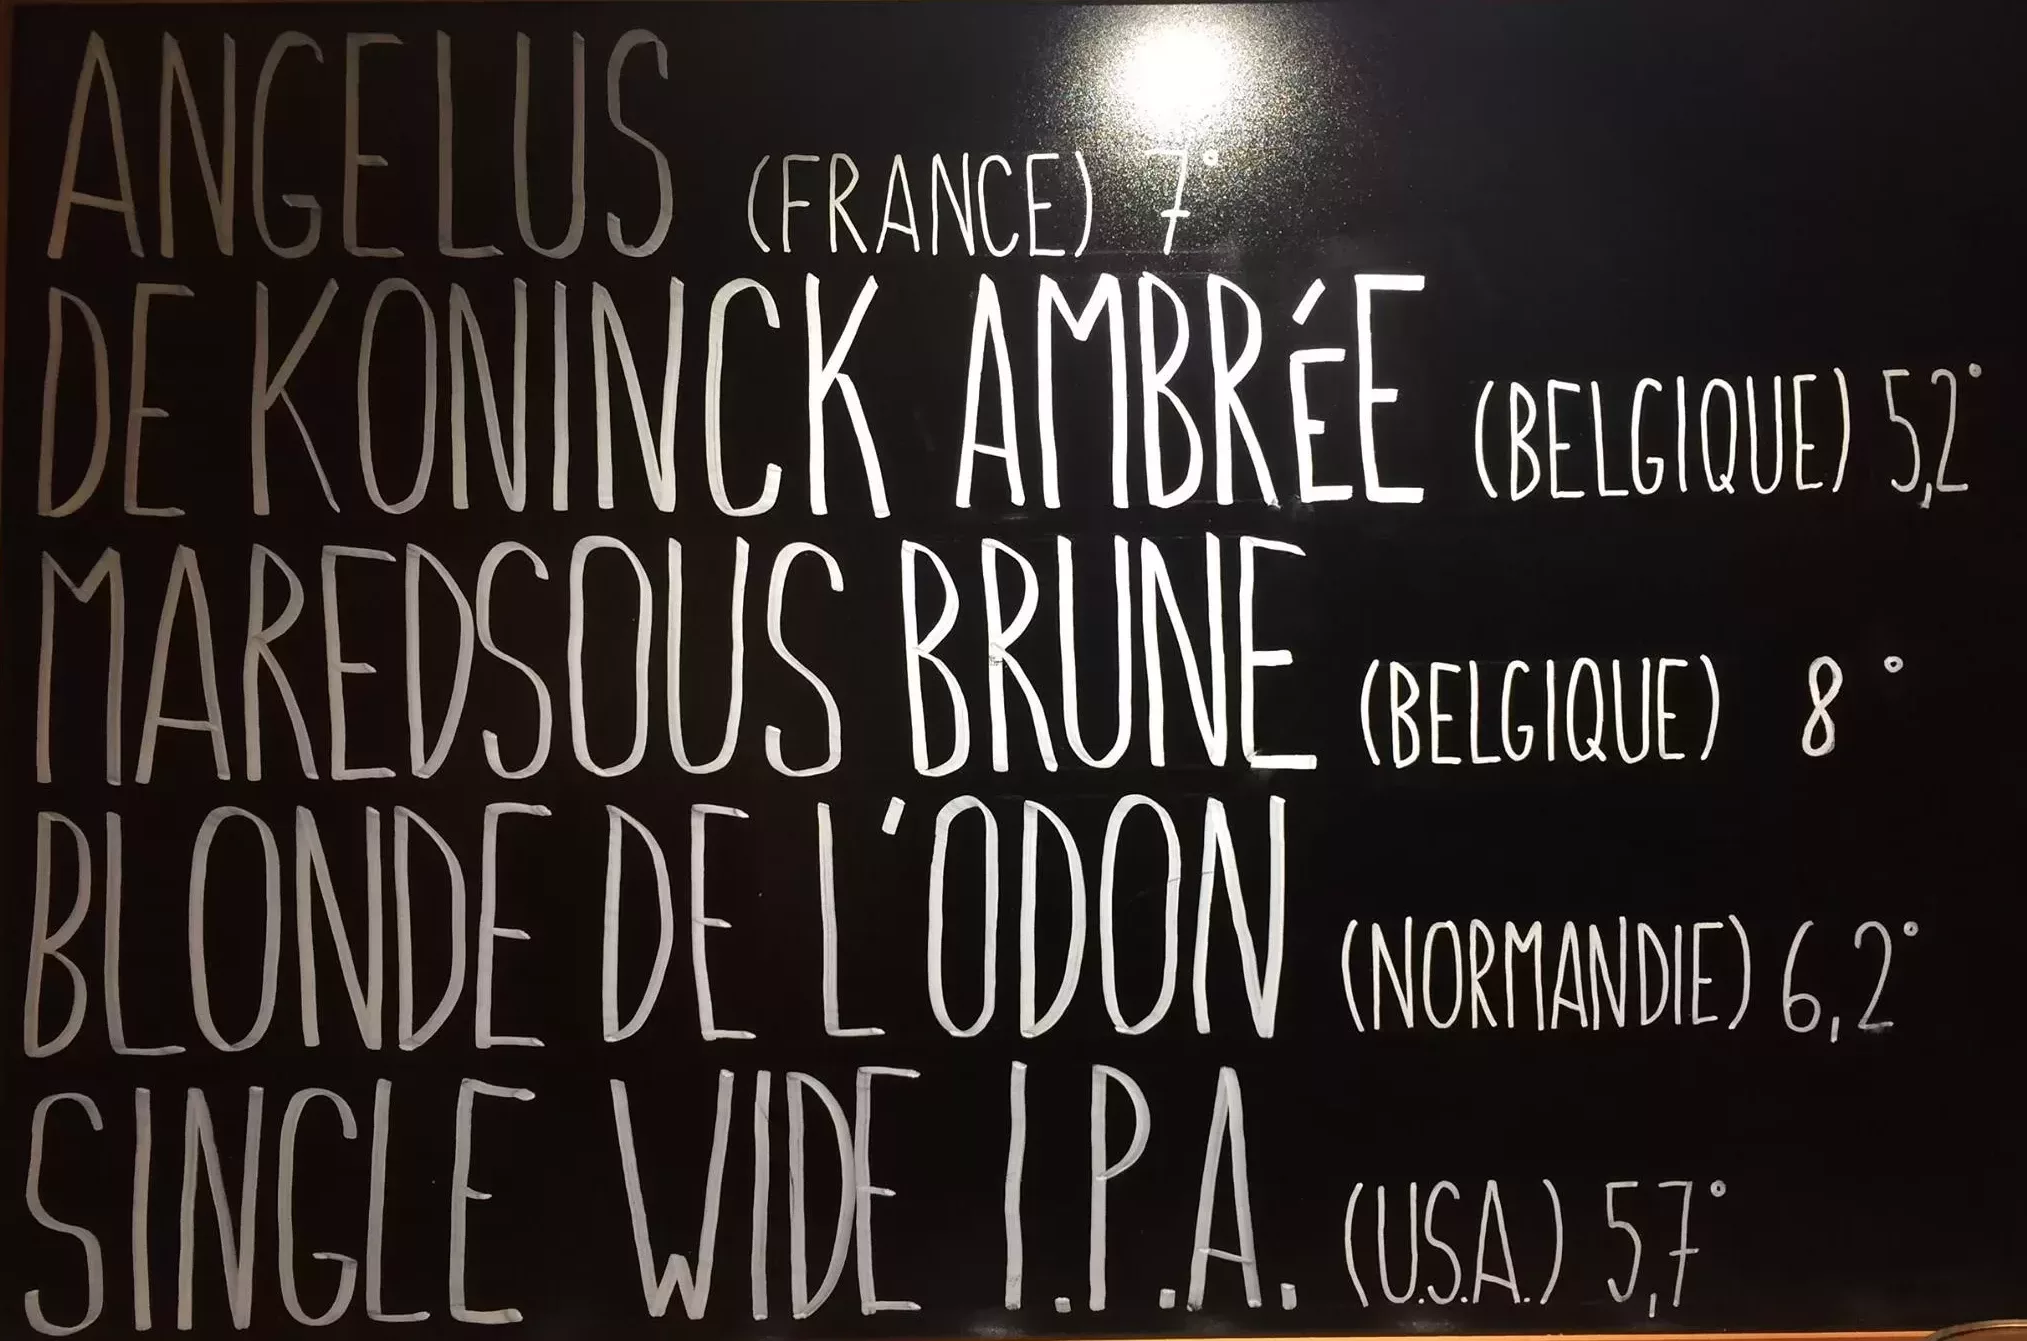 ANGELUS (FRANCE) 7°
DE KONINCK AMBRÉE (BELGIQUE) 5,2°
MAREDSOUS BRUNE (BELGIQUE) 8°
BLONDE DE L'ODON (NORMANDIE) 6,2°
SINGLE WIDE I.P.A. (U.S.A.) 5,7°